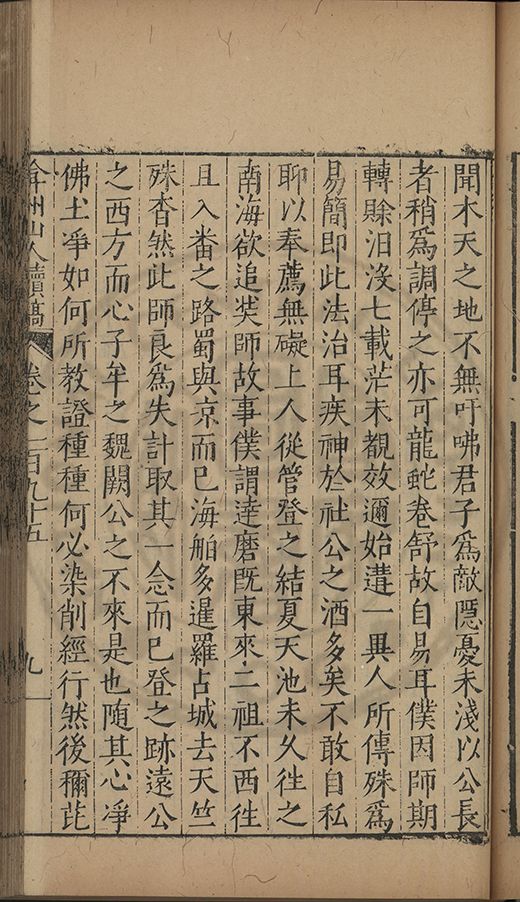 聞木天之地不無吁咈君子爲敵隱憂未淺以公長
者稍爲調停之亦可龍蛇卷舒故自易耳僕因師期
轉賒汨沒七載茫未覩效邇始遘一異人所傳殊爲
易簡卽此法治耳疾神於社公之酒多矣不敢自私
聊以奉薦無礙上人從管登之結夏天池未久往之
南海欲追奘師故事僕謂達磨旣東來二祖不西往
且入番之路蜀與京而已海舶多暹羅占城去天竺
殊杳然此師良爲失計取其一念而已登之跡遠公
之西方而心子牟之魏闕公之不來是也隨其心凈
佛土凈如何所教證種種何必染削經行然後稱苾
弇州山人續稿 卷之一百九十五 九